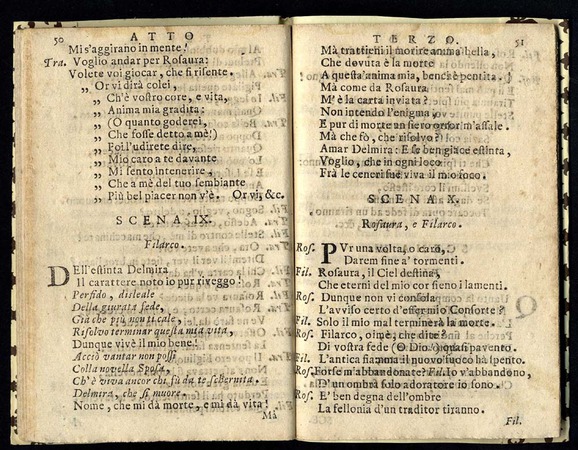 50 ATTO
Mi s'aggirano in mente!
Tra. Voglio andar per Rosaura:
Volete voi giocar, che si risente.
„ Or vi dirà colei,
„ Ch'è vostro core, e vita,
„ Anima mia gradita:
„ (O quanto goderei,
„ Che fosse detto a mè!)
„ Poi l'udirete dire,
„ Mio caro a te davante
„ Mi sento intenerire.
„ Che a mè del tuo sembiante
„ Più bel piacer non v'è. Or vi, &c.
SCENA IX.
Filarco.
DEll'estinta Delmira
Il carattere noto io pur riveggo!
Perfido, disleale
Della giurata fede,
Già che più non ti cale,
Risolvo terminar questa mia vita,
Dunque vivè il mio bene!
Acciò vantar non possi
Colla novella Sposa,
Ch'è viva ancor chi fù da te schernita.
Delmira, che si muore.
Nome, che mi dà morte, e mi dà vita!
Mà
TERZO. 51
Mà trattieni il morire anima bella,
Che dovuta è la morte
A questa anima mia, benchè pentita.
Mà come da Rosaura
M'è la carta inviata?
Non intendo l'enigma,
E pur di morte un fiero orror m'assale.
Mà che fò, che risolvo?
Amar Delmira: E se ben giace estinta,
Voglio, che in ogni loco
Frà le ceneri sue viva il mio foco.
SCENA X.
Rosaura, e Filarco.
Ros. PUr una volta, o caro,
Darem fine a' tormenti.
Fil. Rosaura, il Ciel destina,
Che eterni del mio cor sieno i lamenti.
Ros. Dunque non vi consola
L'avviso certo d'esser mio Consorte?
Fil. Solo il mio mal terminerà la morte.
Ros. Filarco, oimè, che dite?
Di vostra fede (O Dio!) quasi pavento.
Fil. L'antica fiamma il nuovo fuoco ha spento.
Ros. Forse m'abbandonate? Fil. Io v'abbandono,
D'un ombra solo adoratore io sono.
Ros. E' ben degna dell'ombre
La fellonia d'un traditor tiranno.
Fil.